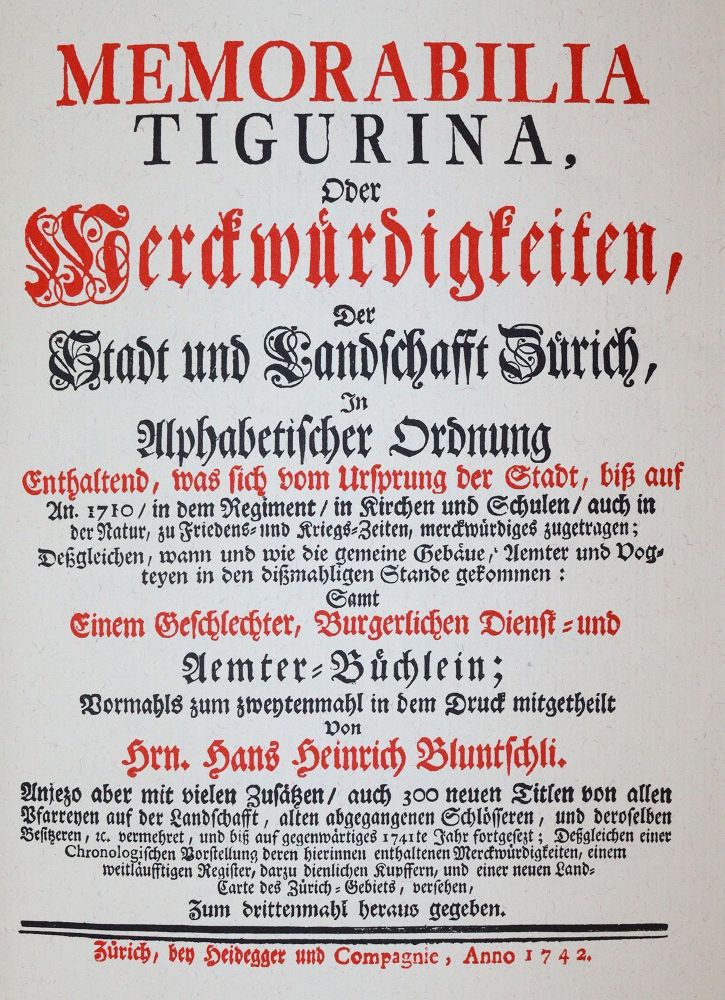 MEMORABILIA
TIGURINA,
Oder
Merckwürdigkeiten,
Der
Stadt und Landschafft Zürich,
In
Alphabetischer Ordnung
Enthaltend, was sich vom Ursprung der Stadt, biß auf
An. 1710/ in dem Regiment/ in Kirchen und Schulen/ auch in
der Natur, zu Friedens- und Kriegs-Zeiten, merckwürdiges zugetragen;
Deßgleichen, wann und wie die gemeine Gebäue, Aemter und Vog-
teyen in den dißmahligen Stande gekommen:
Samt
Einem Geschlechter, Burgerlichen Dienst- und
Aemter-Büchlein;
Vormahls zum zweytenmahl in dem Druck mitgetheilt
Von
Hrn. Hans Heinrich Bluntschli.
Anjezo aber mit vielen Zusätzen/ auch 300 neuen Titlen von allen
Pfarreyen auf der Landschafft, alten abgegangenen Schlösseren, und deroselben
Besitzeren, ꝛc. vermehret, und biß auf gegenwärtiges 1741te Jahr fortgesezt; Deßgleichen einer
Chronologischen Vorstellung deren hierinnen enthaltenen Merckwürdigkeiten, einem
weitläufftigen Register, darzu dienlichen Kupffern, und einer neuen Land-
Carte des Zürich-Gebiets, versehen,
Zum drittenmahl heraus gegeben.
Zürich, bey Heidegger und Compagnie, Anno 1742.